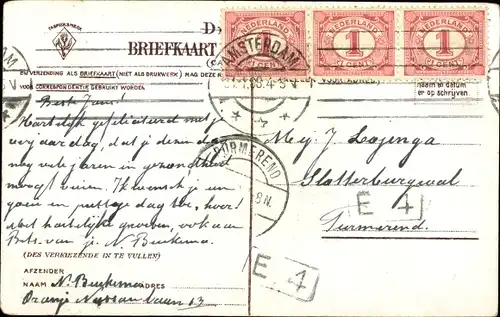 FABRIEKSMERK
BRIEFKAART
NEDERLAND
1
CENT
NEDERLAND
1
CENT
NEDERLAND
1
CENT
AMSTERDAM
BIJ VERZENDING ALS BRIEFKAART (NIET ALS DRUKWERK) MAG DEZE
VOOR CORRESPONDENTIE GEBRUIKT WORDEN
VOOR ADRES
naam en datum
er op schrijven
Beste Jans!
Hartelijk gefeliciteerd met je
verjaardag, dat je dezen dag
nog vele jaren in gezondheid
moogt vieren. Ik wensch je een
goeden en prettige dag toe, hoor!
Met hartelijke groeten, ook aan
Bets. van je N. Beukema.
PURMEREND
Mej. J. Lojenga
Slotterburgwal
Purmerend.
E 4
E 4
(DES VERKIEZENDE IN TE VULLEN)
AFZENDER
NAAM N. Beukema ADRES
Oranje Nassaulaan 13